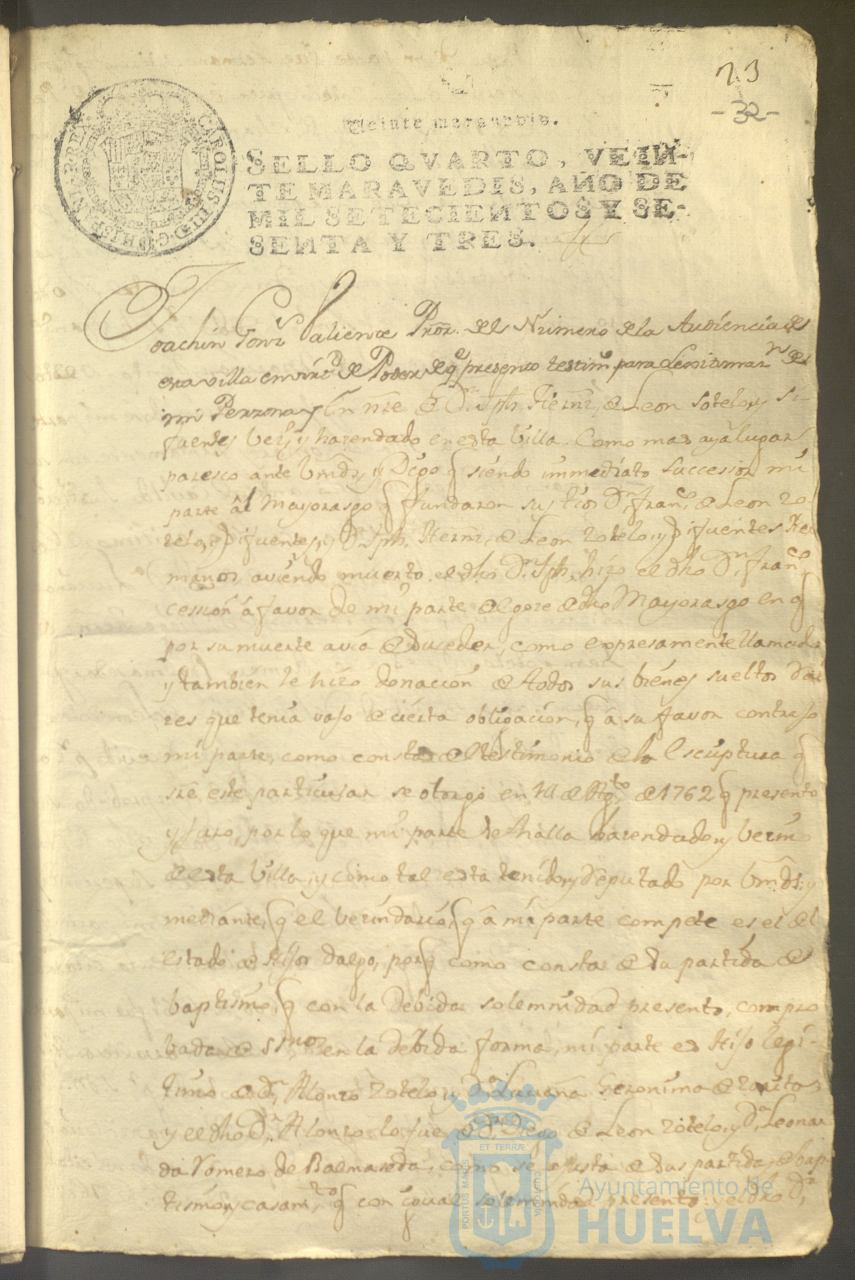 23
-32-
CAROLUS III D.G. HISPANIAR. REX
Veinte maravedis.
SELLO QVARTO, VEIN-
TE MARAVEDIS, AÑO DE
MIL SETECIENTOS Y SE-
SENTA Y TRES.
Joachin Gonz Valiente Pror. del Número de la Audiencia de
esta villa en virtd de Poder de q presento testimo para Lexitimar de
mi Perzona y En nre de Dn Jph. Hernz, de Leon Sotelo, y Si-
fuentes Vezo y hazendado en esta Villa. Como mas aya lugar
paresco ante Vmds y Digo q siendo immediato Successor mi
parte al Mayorasgo q fundaron sus tios Dn Franco de Leon zo-
telo, y zifuentes, y Dn Jph. Hernz, de Leon zotelo, y zifuentes Her-
manos aviendo muerto el dho Dn Jph, hizo el dho Dn Franco
cession a favor de mi parte del goze de dho Mayorasgo en q
por su muerte avia de suseder, como expresamente llamado
y tambien le hizo donacion de todos sus bienes sueltos
res que tenia vajo de cierta obligacion, q a su favor contrajo
mi parte, como consta del testimonio de la Escriptura q
sre este particular se otorgó en de Agto de 1762 q presento
y juro, por lo que mi parte se halla hazendado y vezino
de esta Villa, y como tal esta tenido y Deputado por Vmds; y
mediante, q el vezindario, q a mi parte compete es el del
estado de Hijos dalgo, porq como consta de su partida de
baptismo, q con la debida solemnidad presento, compro
bada de ssnos en la debida forma, mi parte es Hijo Legi-
timo de Dn Alonzo zotelo, y Da Luciana Geronima de
y el dho Dn Alonzo lo fue de Dn Diego de Leon zotelo, y Da Leonar
da Romero de Balmaseda, como se ajusta de sus partidas de bap
tismo y casamto q con igual solemnidad presento; y el dho Dn
ET TERRÆ
PORTUS MARIS
CUSTODIA
Ayuntamiento de
HUELVA